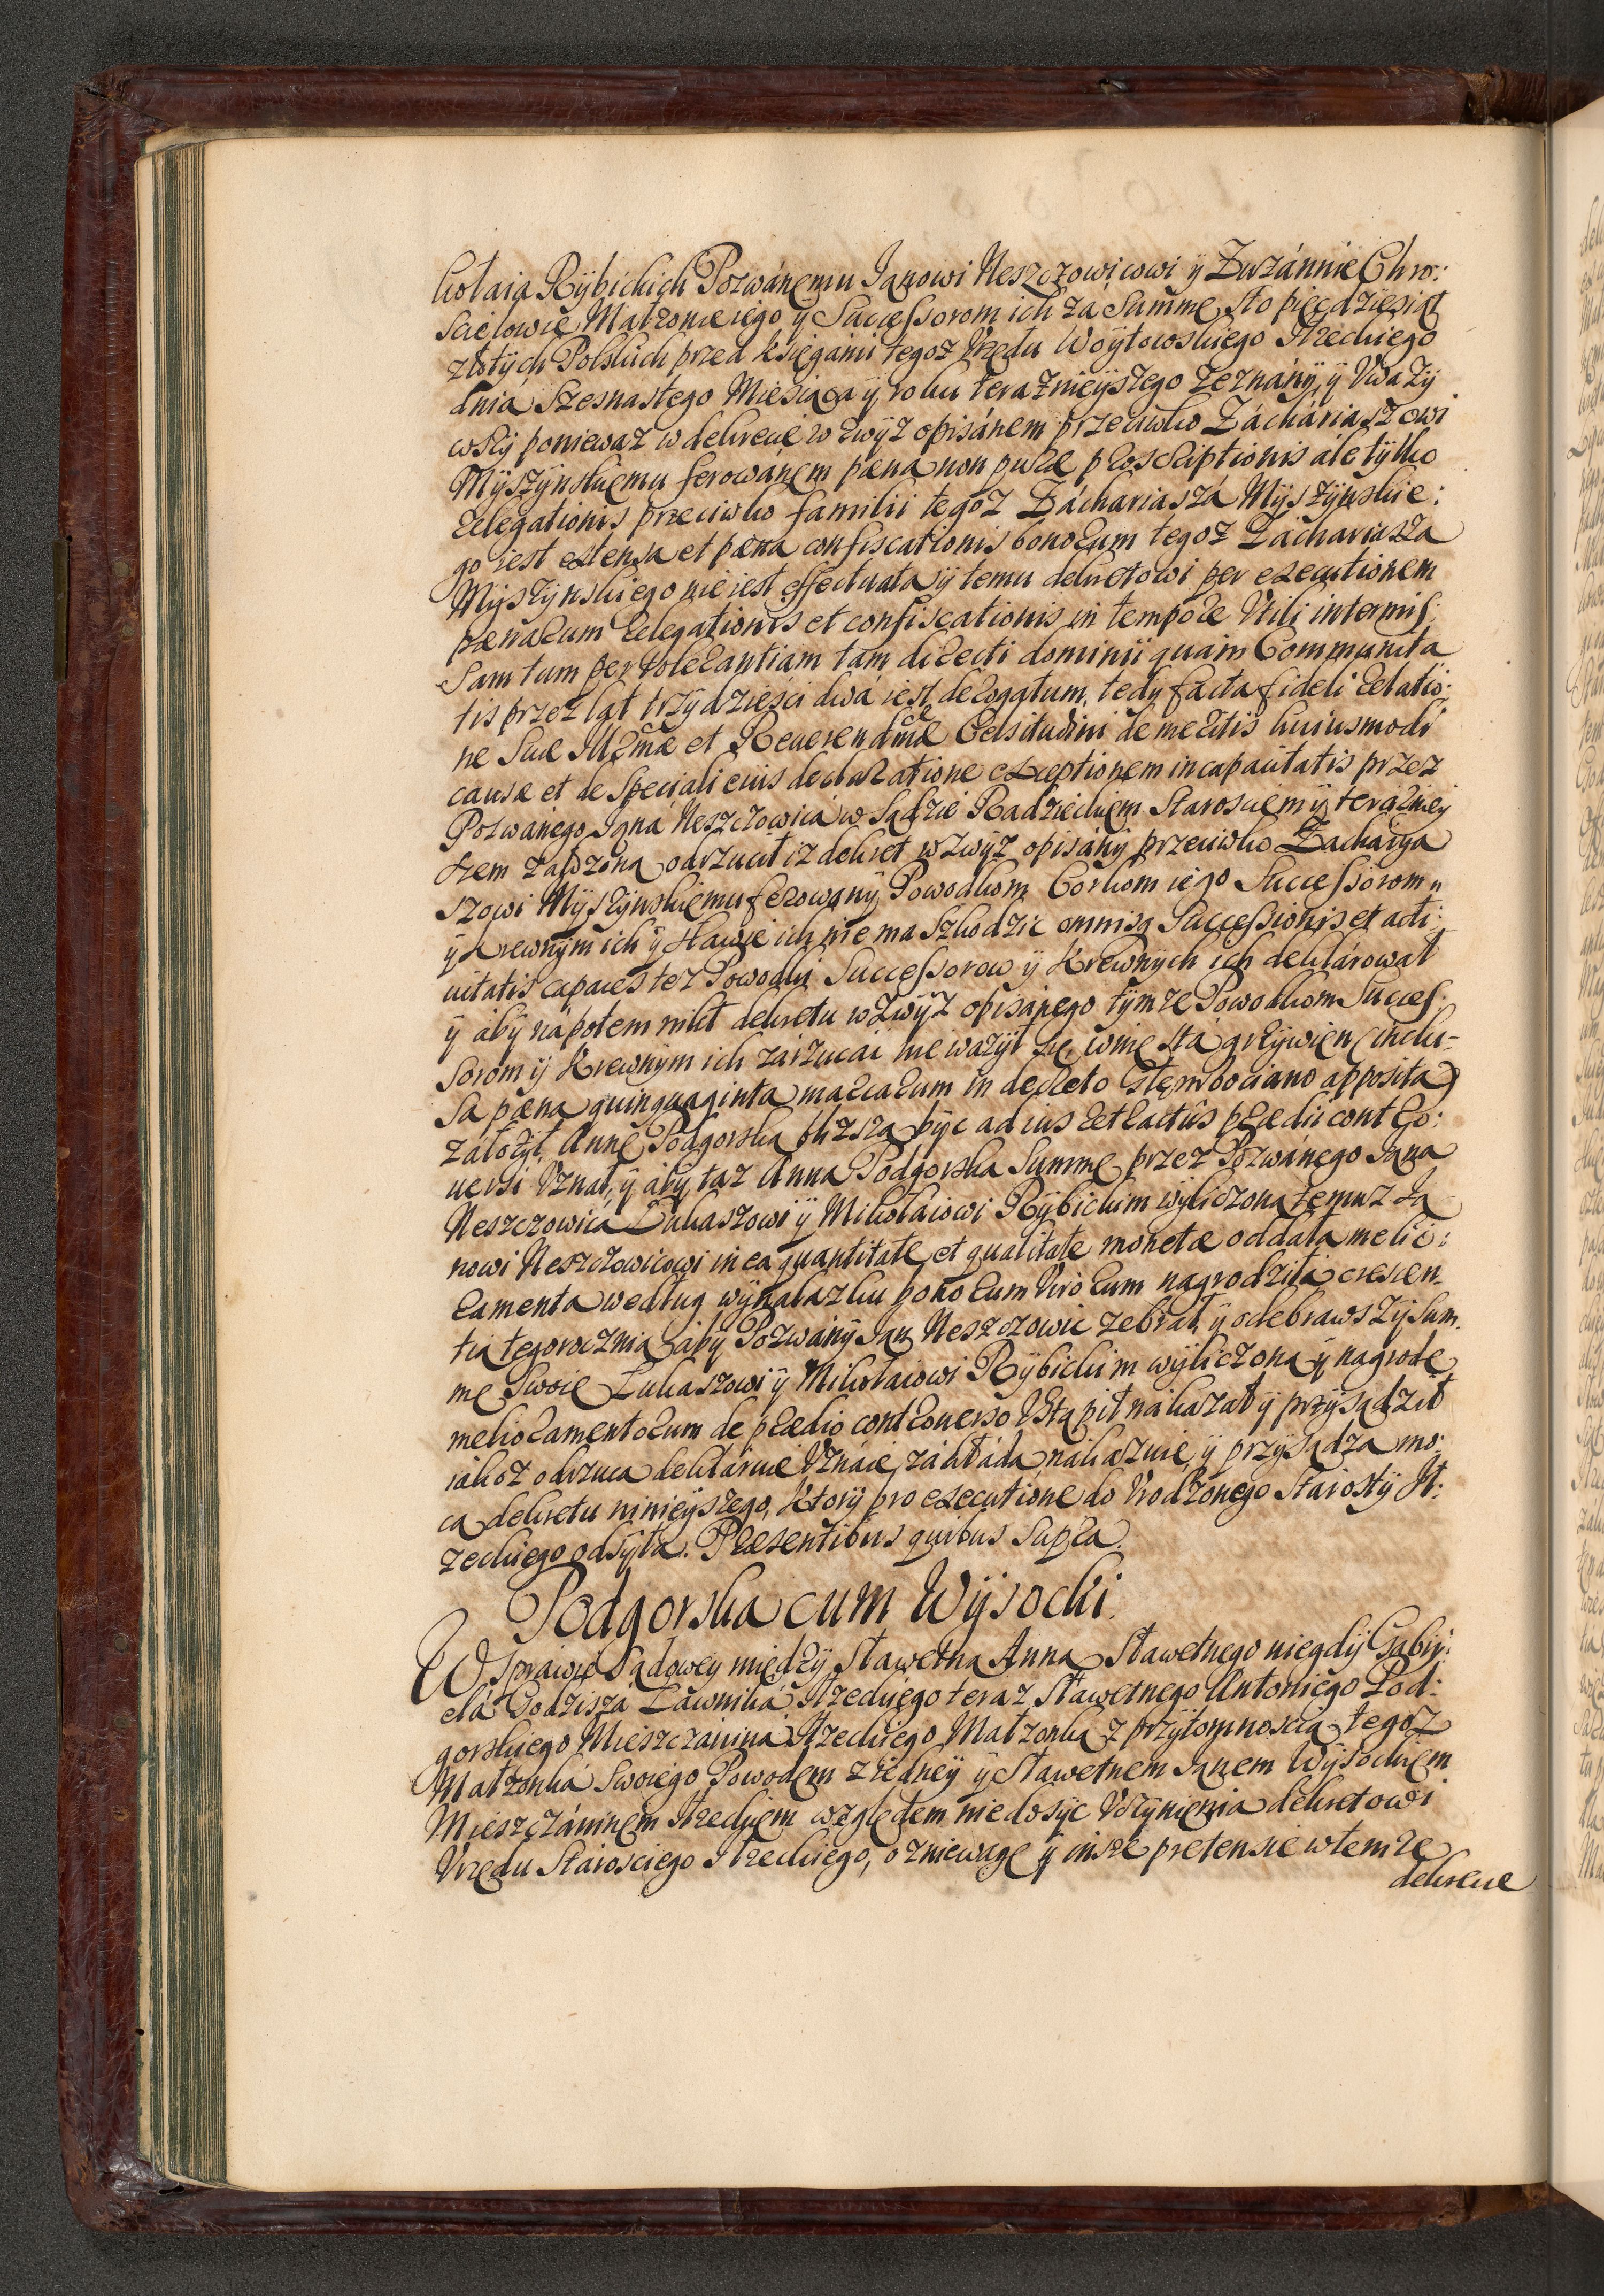 kołaia Rÿbickich Pozwánemu Janowi Neszczowicowi ÿ Zuzánnie Chro:
scielowie Małzonce iego ÿ Successorom ich za Summę sto pięcdziesiąt
złotÿch Polskich przed księgami tegoz Urzędu Woÿtowskiego Itzeckiego
dniá Szesnastego Miesiąca ÿ roku teraznieÿszego zeznánÿ, ÿ Uwazÿ
wszÿ poniewaz w dekrecie wzwÿz opisánem przeciwko Zácháriaszowi
Mÿszÿnskiemu ferowánem pæna non puræ proscriptionis ále tÿlko
relegationis przeciwko familii tegoz Zácháriaszá Mÿszÿnskie:
go iest extensa et pæna confiscationis bonorum tegoz Zácháriasza
Mÿszÿnskiego nie iest effectuata ÿ temu dekretowi per executionem
pænarum relegationis et confiscationis in tempore Utili intermis:
sam tum per tolerantiam tam directi dominii quam Communita
tis przez lat trzÿdziesci dwá iest derogatum, tedÿ facta fideli relatio:
ne Suæ Illrmæ et Reuerendmæ Celsitudini de meritis huiusmodi
causæ et de speciali eius declaratione exceptionem incapacitatis przez
Pozwanego Janá Neszczowicá w Sądzie Radzieckiem Staroscem ÿ terázniey
szem zaszłą odrzucił iz dekret wzwÿz opisánÿ przeciwko Zacharya
szowi Mÿszÿnskiemu ferowánÿ Powodkom Corkom iego Successorom
ÿ krewnÿm ich ÿ sławie ich nie ma szkodzic omnisq Successionis et acti:
uitatis capaces tez Powodki Successorow ÿ Krewnÿch ich deklárował
ÿ ábÿ nápotem nikt dekretu wzwÿz opisánego tÿmze Powodkom Succes:
sorom ÿ Krewnÿm ich zárzucác nie wazÿł się, winę sta grzÿwien (inclu-
sa pæna quinquaginta marcarum in decreto apposita)
záłozÿł, Annę Podgorską blizszą bÿc ad ius retractûs prædii contro:
uersi Uznał, ÿ ábÿ taz Anna Podgorska Summę przez Pozwánego Jana
Neszczowicá Łukaszowi ÿ Mikołaiowi Rÿbickim wÿliczoną temuz Ja
nowi Neszczowicowi in ea quantitate et qualitate monetæ oddała melio:
ramenta według wÿnalazku bonorum Uirorum nagrodziła crescen
tią tegoroczną ábÿ Pozwánÿ Jan Neszczowic zebrał, ÿ odebrawszÿ Sum
mę Swoię Łukaszowi ÿ Mikołaiowi Rÿbickim wÿliczoną ÿ nagrodę
meliaramentorum de prædio controuerso Ustąpił nákazał ÿ przÿsądził
iákoz odrzuca deklaruie Uznáie, zákłáda nákázuie, ÿ przÿsądza mo:
cą dekretu ninieÿszego, ktorÿ pro executione do Urodzonego Starostÿ It:
zeckiego odsÿła. Præsentibus quibus Supra.
Podgorska cum Wÿsocki.
W Sprawie Sądoweÿ międzÿ Sławetną Anną Sławetnego niegdÿ Gabry:
elá Godziszá Ławniká Itzeckiego teraz Sławetnego Antoniego Pod:
gorskiego Mieszczániná Itzeckiego Małzonką z przÿtomnoscią tegoz
Małzonká Swoiego Powodem z iedneÿ ÿ Sławetnem Janem Wÿsockiem
Mieszczáninem Itzeckiem względem niedosÿc Uczÿnienia dekretowi
Urzędu Staroscięgo Itzeckiego, o zniewagę ÿ insze pretensie w temze
dekrecie